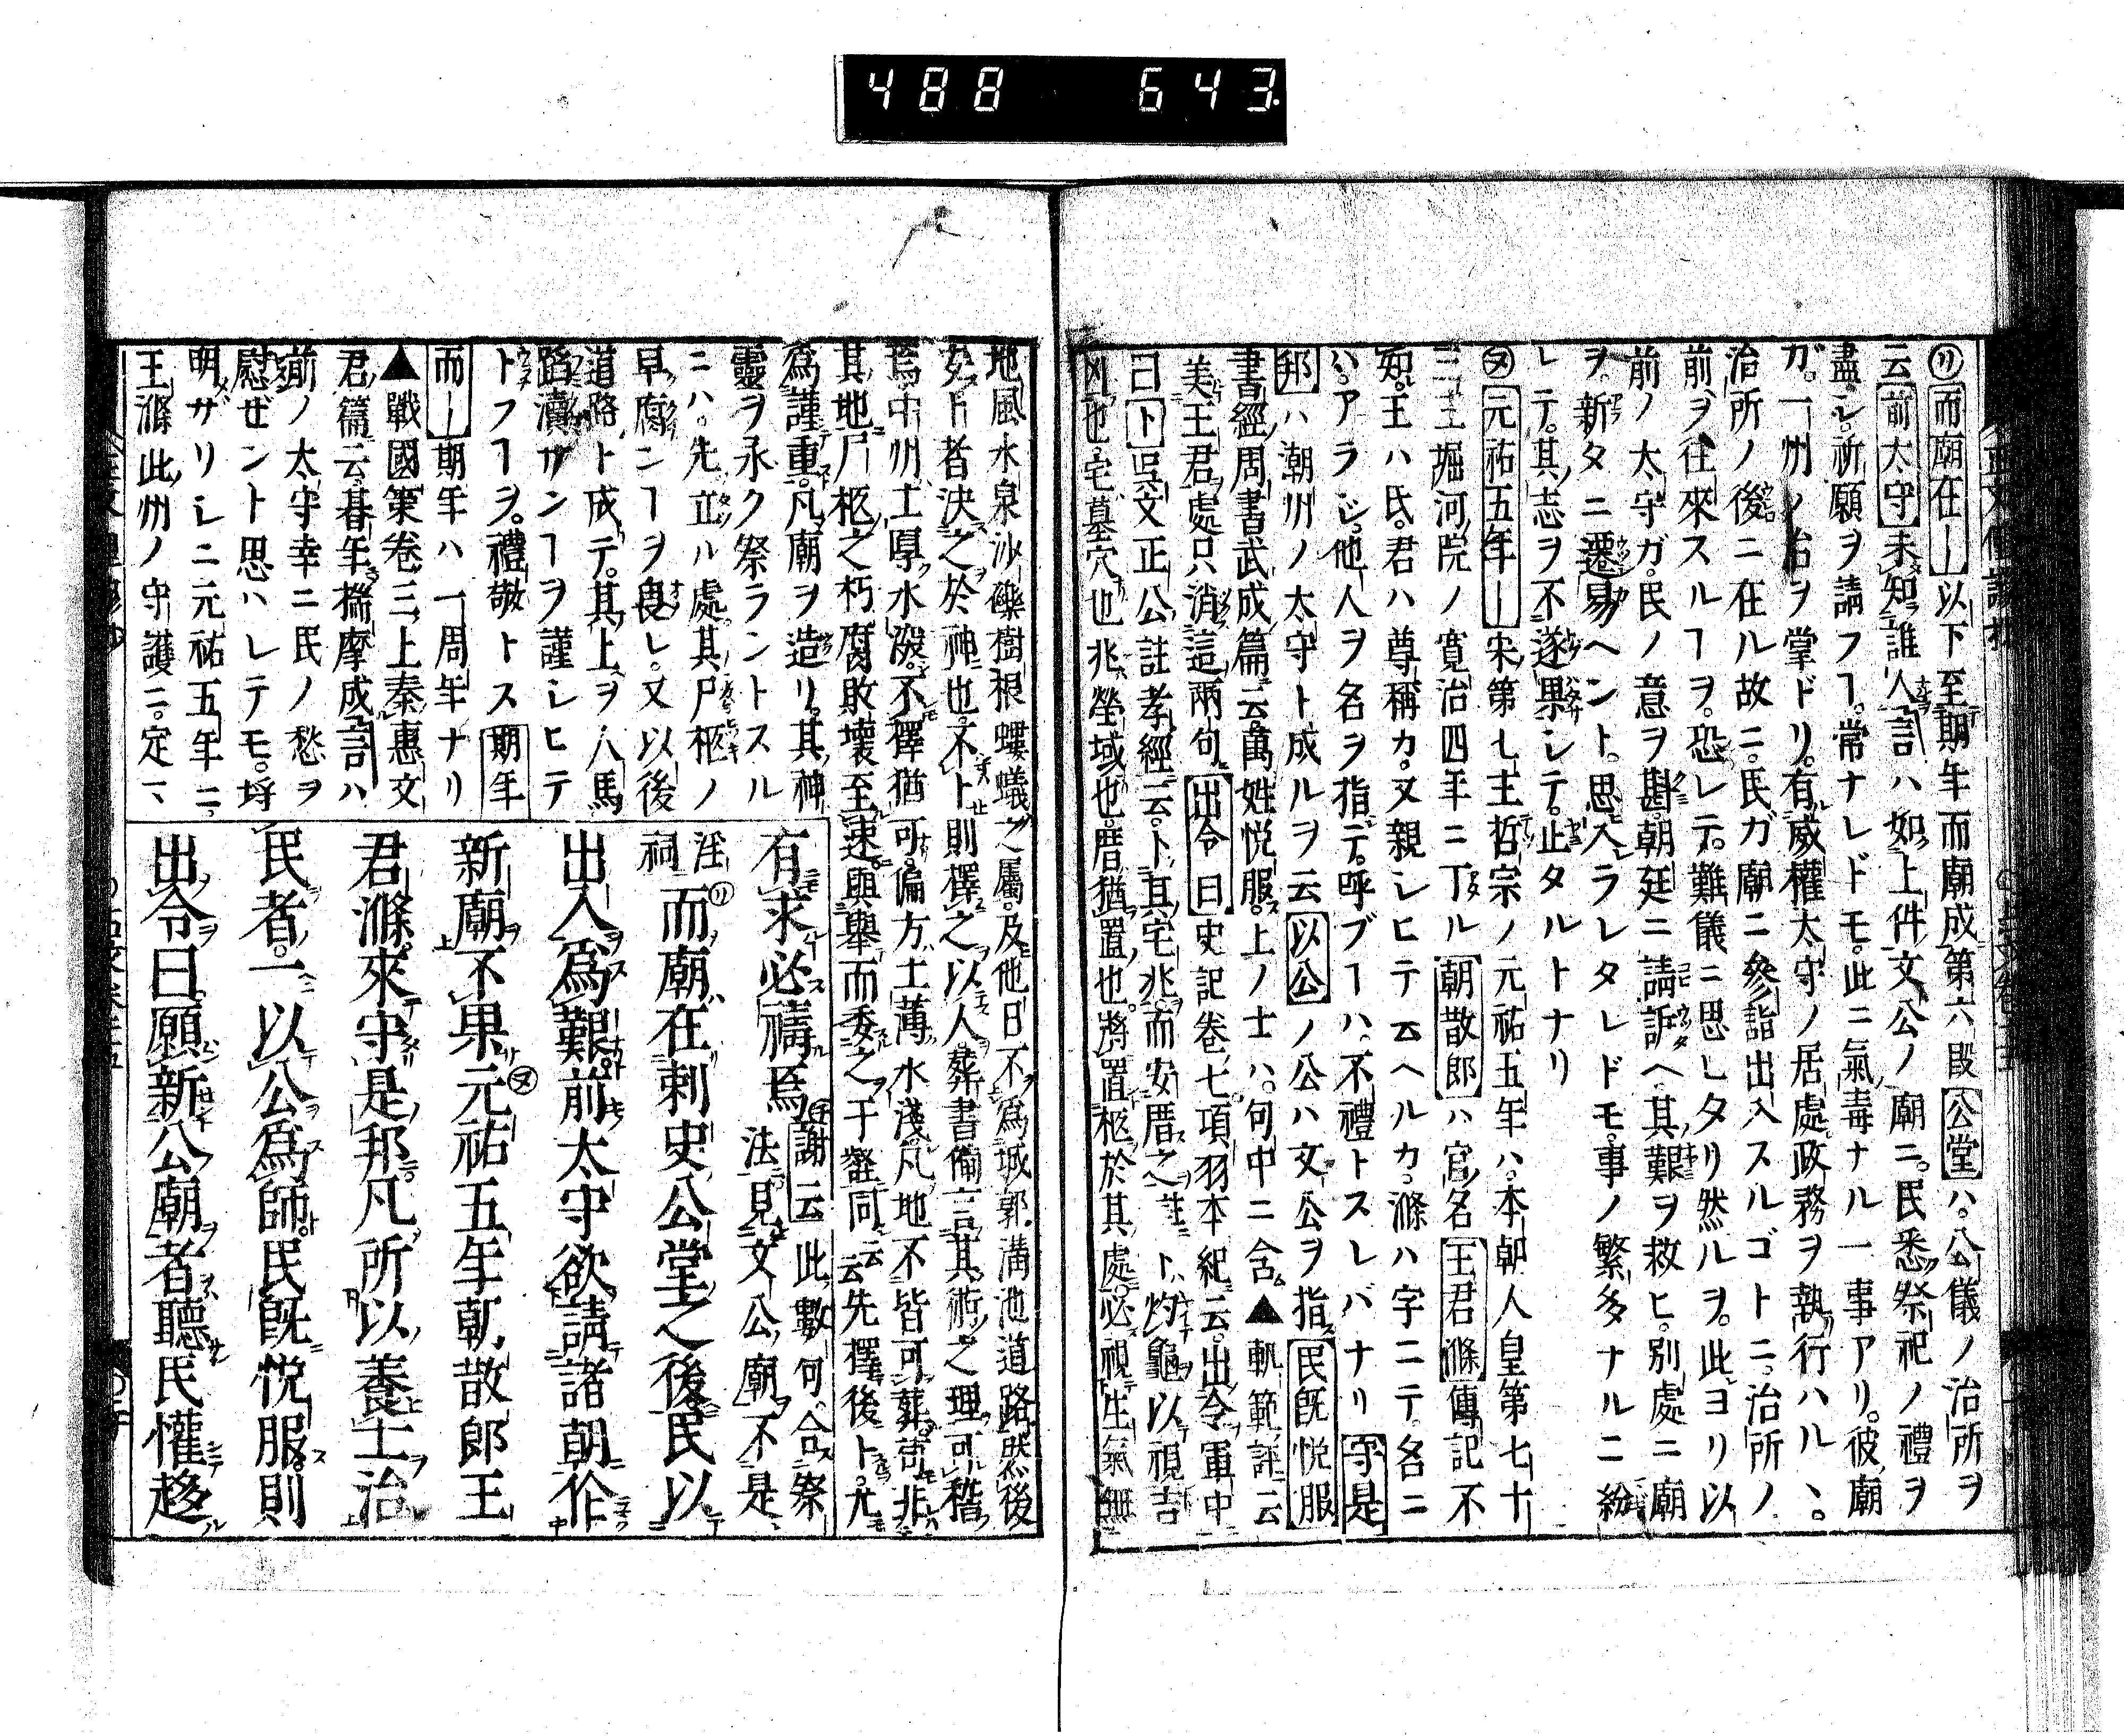 488 643
㋷而廟在〡以下至期年而廟成第六段公堂ハ公儀ノ治所ヲ
云前太守未知誰人言ハ如上件文公ノ廟ニ民悉祭祀ノ禮ヲ
盡シ祈願ヲ請フヿ常ナレドモ此ニ氣毒ナル一事アリ彼廟
ガ一州ノ治ヲ掌ドリ有威權太守ノ居處政務ヲ執行ハルヽ
治所ノ後ニ在ル故ニ民ガ廟ニ參詣出入スルゴトニ治所ノ
前ヲ往來スルヿヲ恐レテ難儀ニ思レタリ然ルヲ此ヨリ以
前ノ太守ガ民ノ意ヲ斟朝廷ニ請訴ヘ其艱ヲ救ヒ別處ニ廟
ヲ新タニ遷易ヘント思入ラレタレドモ事ノ繁多ナルニ紛
レテ其志ヲ不遂果シテ止タルトナリ
㋦元祐五年〡宋第七主哲宗ノ元祐五年ハ本朝人皇第七十
三主堀河院ノ寬治四年ニ丁ル朝散郎ハ官名王君滌傳記不
知王ハ氏君ハ尊稱カ又親シヒテ云ヘルカ滌ハ字ニテ各ニ
ハアラジ他人ヲ名ヲ指テ呼ブヿハ不禮トスレバナリ守是
邦ハ潮州ノ太守ト成ルヲ云以公ノ公ハ文公ヲ指民旣悅服
書經周書武成篇云萬姓悅服上ノ士ハ句中ニ含▲軌範評云
美王君處只消這兩句出令曰史記卷七項羽本紀云出令軍中
曰卜吳文正公註孝經云卜其宅兆而安厝之註卜灼龜以視吉
凶也宅墓穴也兆塋域也厝猶置也將置柩於其處必視生氣無
地風水泉沙礫樹根螻蟻之屬及他日不爲城郭溝池道路然後
安卜者決之於神也不卜則擇之以人葬書備言其術之理可稽
焉中州土厚水深不擇猶可偏方土薄水淺凡地不皆可葬苟非
其地尸柩之朽腐敗壞至速與舉而委之于壑同云云先擇後卜尤
爲謹重凡廟ヲ造リ其神
靈ヲ永ク祭ラントスル
ニハ先立ル處其尸柩ノ
早腐ンヿヲ畏レ又以後
道路ト成テ其上ヲ人馬
蹈瀆サンヿヲ謹シヒテ
トフヿヲ禮敬トス期年
而〡期年ハ一周年ナリ
▲戰國策卷三上秦惠文
君篇云朞年揣摩成言ハ
前ノ太守幸ニ民ノ愁ヲ
慰ゼント思ハレテモ埒
明ザリシニ元祐五年ニ
王滌此州ノ守護ニ定マ
有求必禱焉 謝云此數句合祭法見文公廟不是
淫祠㋷而廟在刺史公堂之後民以
出入爲艱前太守欲請諸朝作
新廟不果㋦元祐五年朝散郎王
君滌來守是邦凡所以養士治
民者一以公爲師民旣悅服則
出令曰願新公廟者聽民懽趍